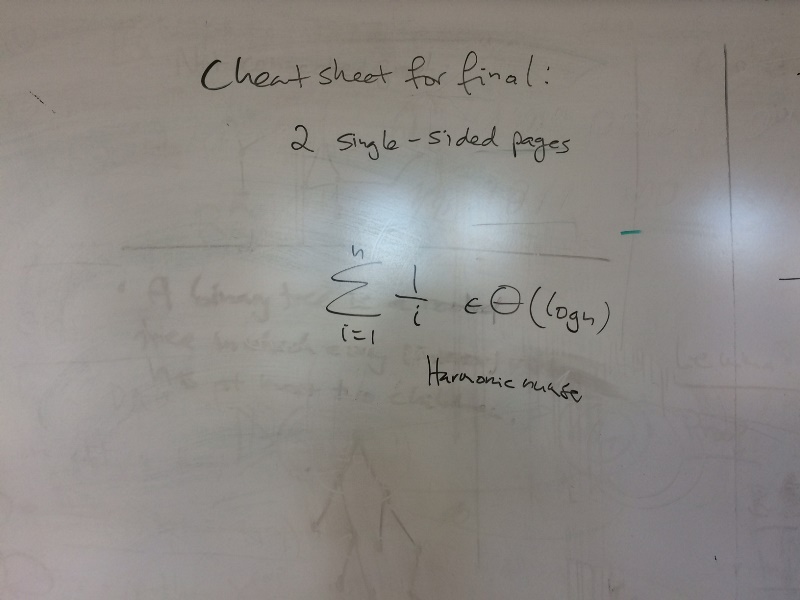 Cheat sheet for final:
2 single-sided pages
n
∑ 1/i ∈ Θ(log n)
i=1
Harmonic